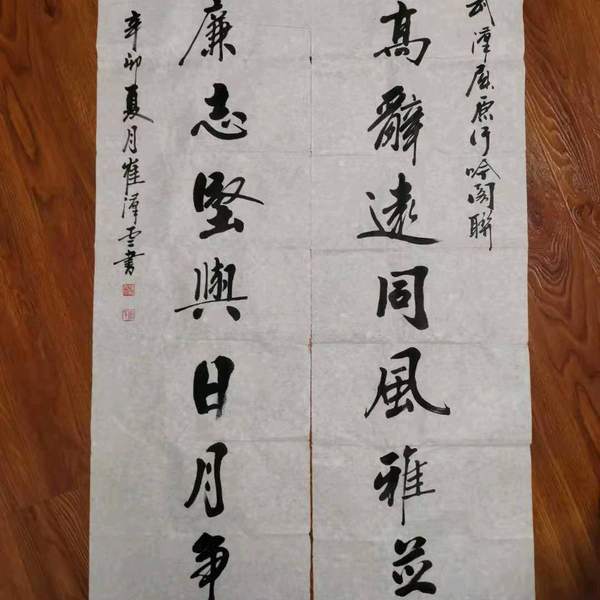 武漢屈原行吟阁聯
高辭遠同風雅並
廉志堅與日月争
辛卯夏月崔澤雲書